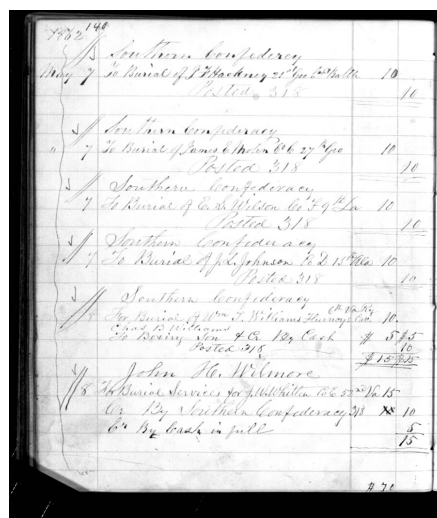 1862 140
Southern Confederacy
May 7 To Burial of J T Hackney 21st Geo Batta 10
Posted 318 10
Southern Confederacy
" 7 To Burial of James C Co C 27th Geo 10
Posted 318 10
Southern Confederacy
7 To Burial of E. S. Wilson Co F 9th La 10
Posted 318 10
Southern Confederacy
7 To Burial of J. L. Johnson Co D 13th Ala 10
Posted 318 10
Southern Confederacy
8 For Burial of Wm T. Williams Cav. 10
Chas. B Williams
To Boxing Son & Cr By Cash $ 5 $5
Posted 318 10
$15 $15
John H. Wilmore
8 To Burial Services for J. W. Whitten Co C 52nd Va 15
Cr By Southern Confederacy 318 10
Cr By Cash in full 5
15
$ 70